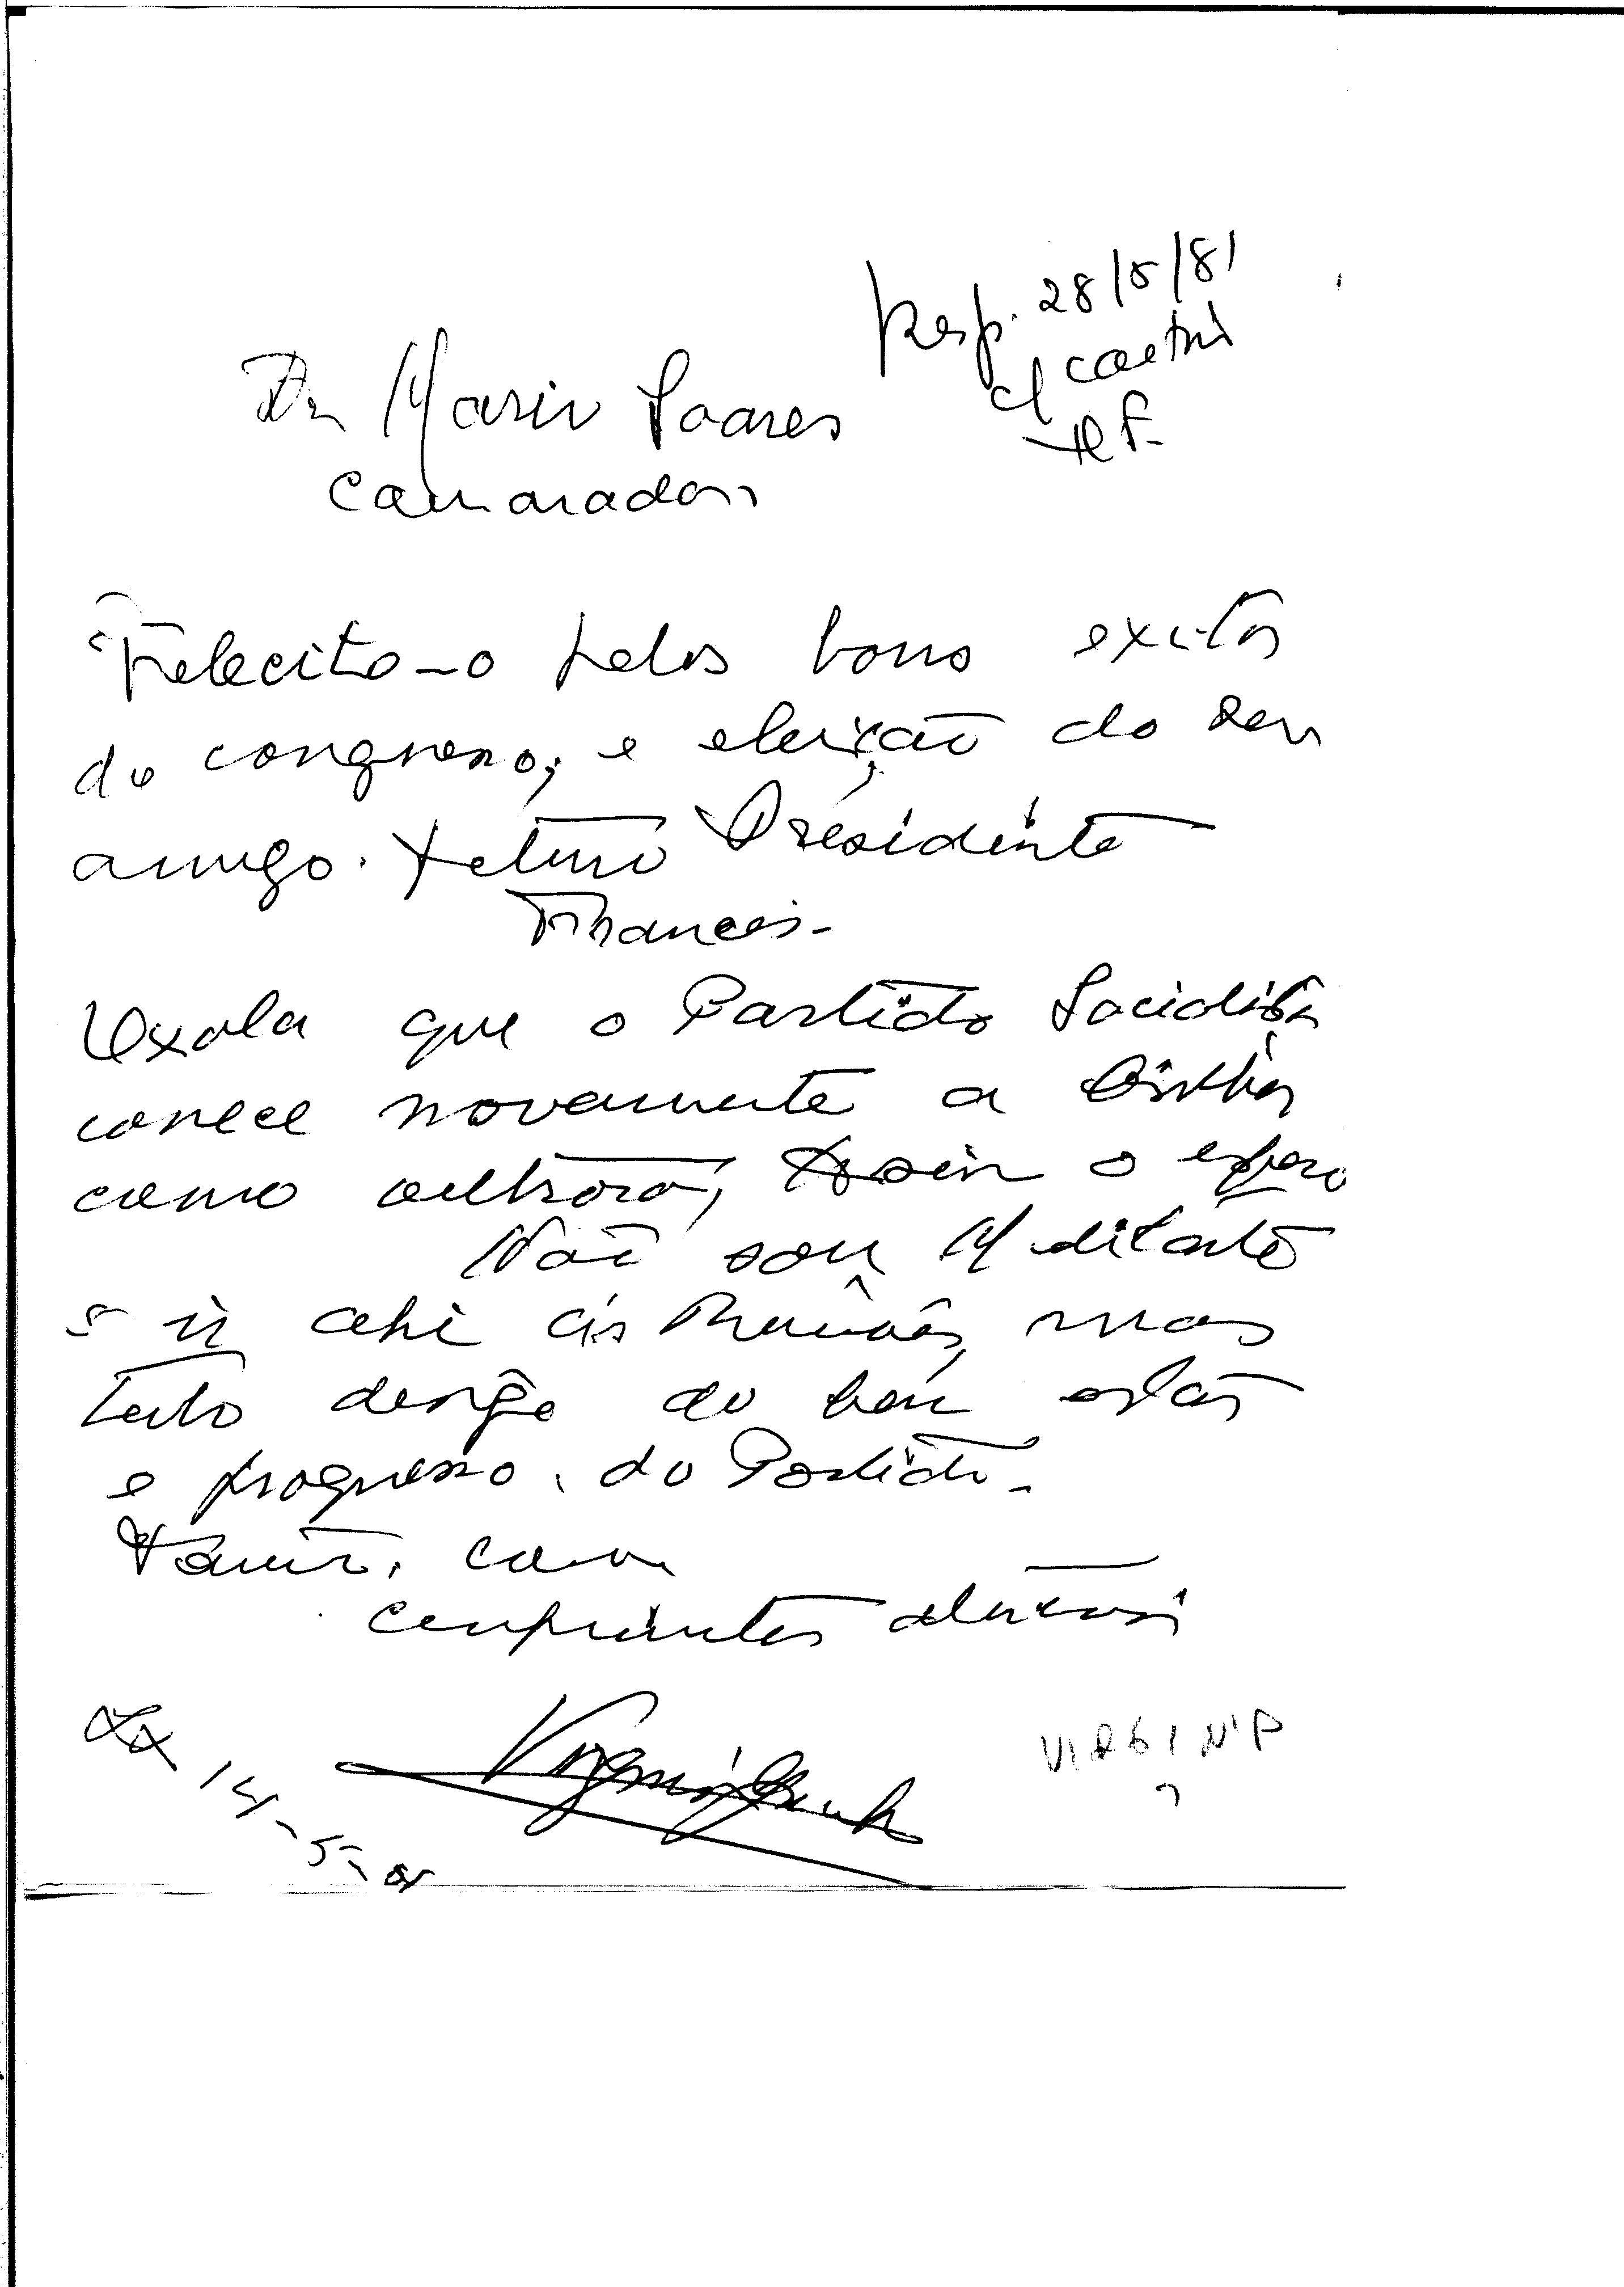 Resp. 28/5/81
c/ cartão
Dr Mario Soares
Camarada
Felecito-o pelos bons exitos
do congresso, e eleição do seu
amigo. futuro Présidente
Frances-
Oxala que o Partido Socialista
comece novamente a
como outrora, Assim o espero
Não sou Militante
ir ahi ás Reuniões, mas
tudo desejo do bem estar
e progresso. do Partido-
Termino, com
cumprimentos
Lx 14-5-81
VIRGINIA
?